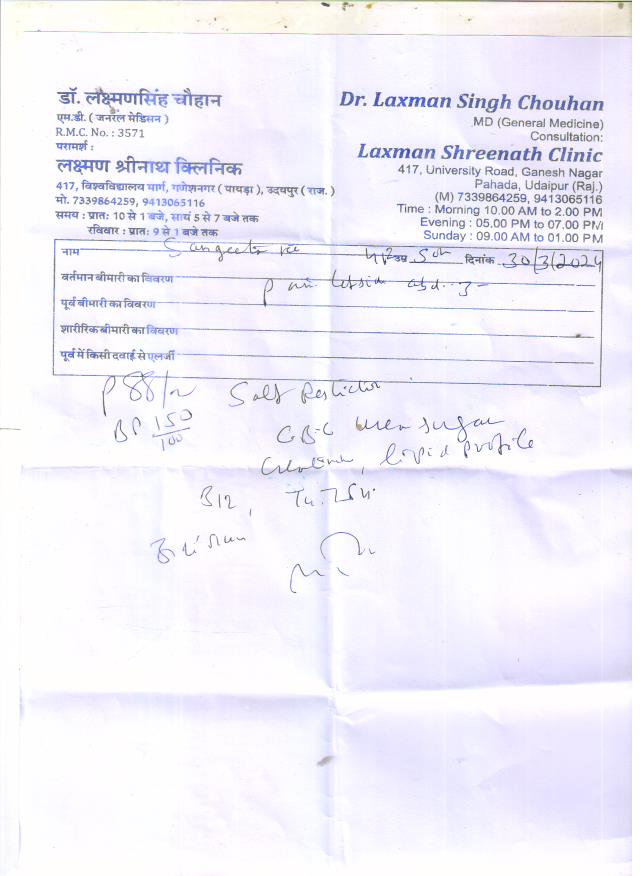 डॉ. लक्ष्मणसिंह चौहान
एम.डी. ( जनरल मेडिसन )
R.M.C. No. : 3571
परामर्श :
लक्ष्मण श्रीनाथ क्लिनिक
417, विश्वविद्यालय मार्ग, गणेशनगर ( पायड़ा ), उदयपुर ( राज. )
मो. 7339864259, 9413065116
समय : प्रातः 10 से 1 बजे, सायं 5 से 7 बजे तक
रविवार : प्रातः 9 से 1 बजे तक
Dr. Laxman Singh Chouhan
MD (General Medicine)
Consultation:
Laxman Shreenath Clinic
417, University Road, Ganesh Nagar
Pahada, Udaipur (Raj.)
(M) 7339864259, 9413065116
Time : Morning 10.00 AM to 2.00 PM
Evening : 05.00 PM to 07.00 PM
Sunday : 09.00 AM to 01.00 PM
नाम Sangeeta उम्र दिनांक 30/3/2024
वर्तमान बीमारी का विवरण Pain abd.
पूर्व बीमारी का विवरण
शारीरिक बीमारी का विवरण
पूर्व में किसी दवाई से एलर्जी
P 88/m Salt Restriction
BP 150/100 CBC urea sugar
Creatinine, lipid profile
B12, T4. TSH.